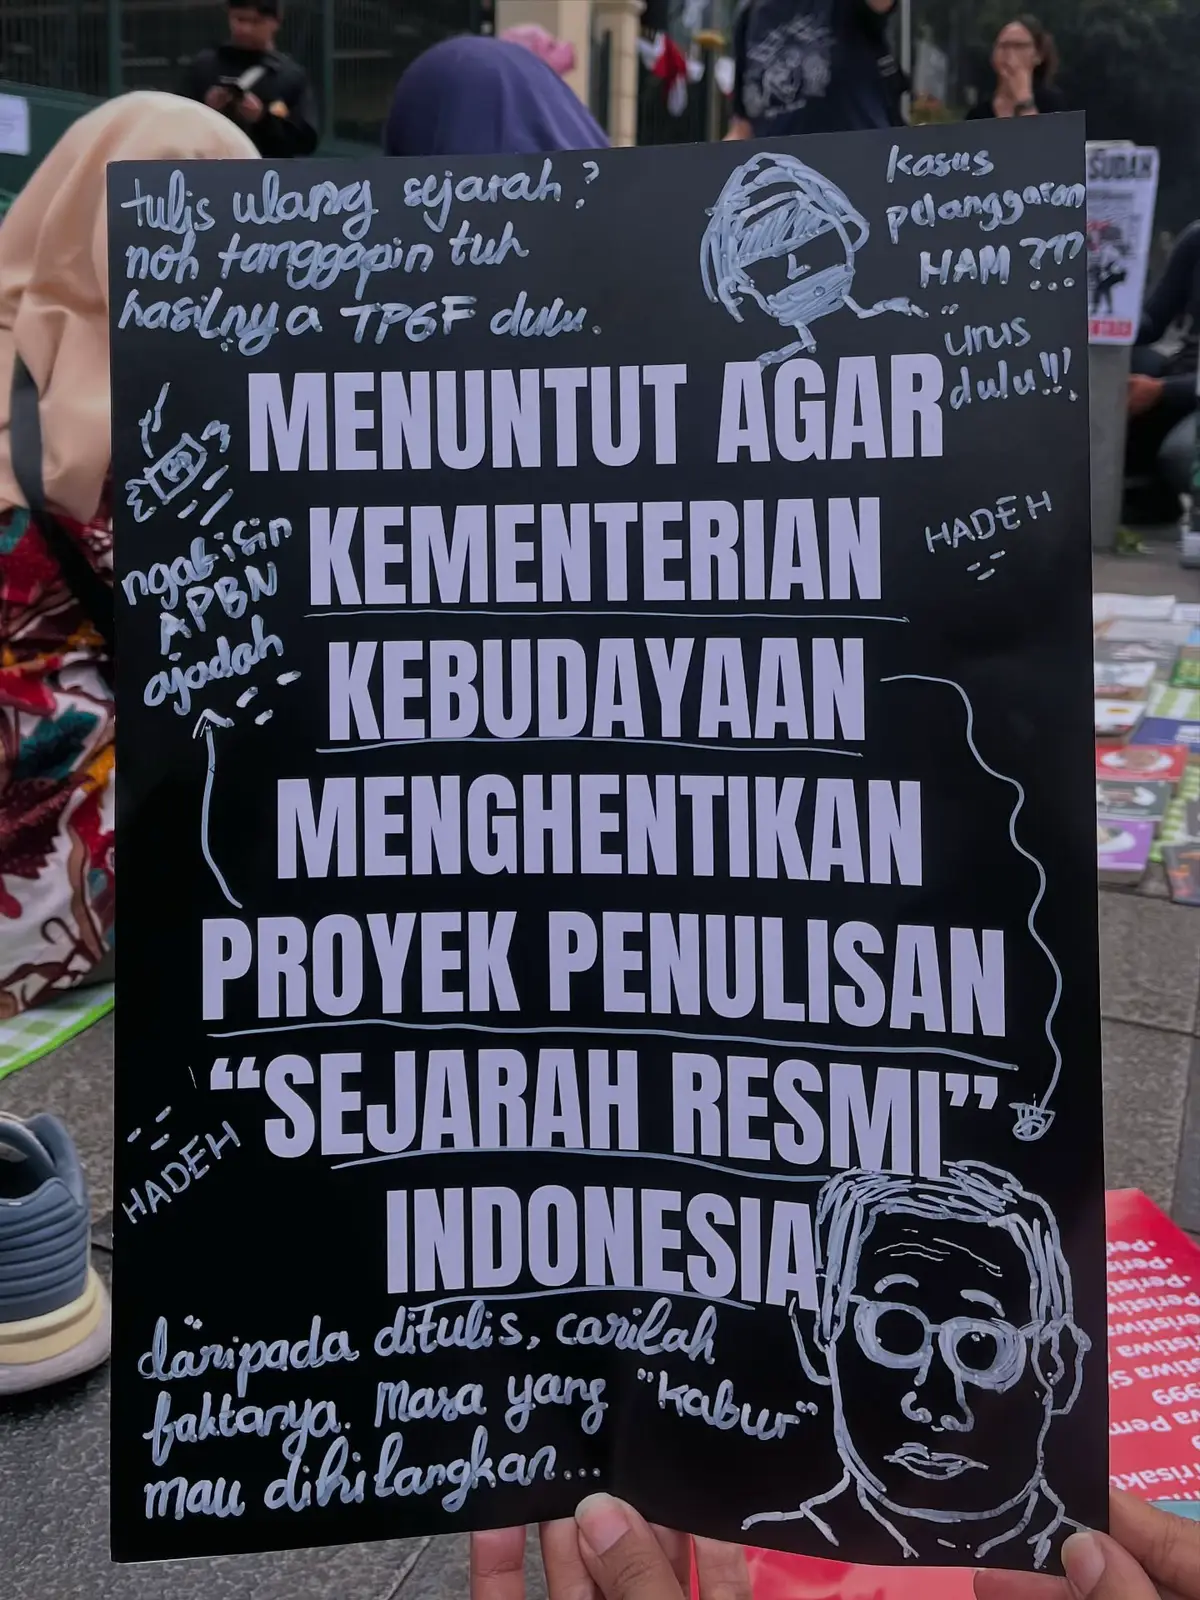 tulis ulang sejarah?
noh tanggapin tuh
hasilnya TPGF dulu.
Kasus
pelanggaran
HAM???
urus
dulu!!!
MENUNTUT AGAR
KEMENTERIAN
KEBUDAYAAN
MENGHENTIKAN
PROYEK PENULISAN
“SEJARAH RESMI”
INDONESIA
HADEH
ngabisin
APBN
ajadah
HADEH
daripada ditulis, carilah
faktanya. Masa yang "kabur"
mau dihilangkan...
SUDAH